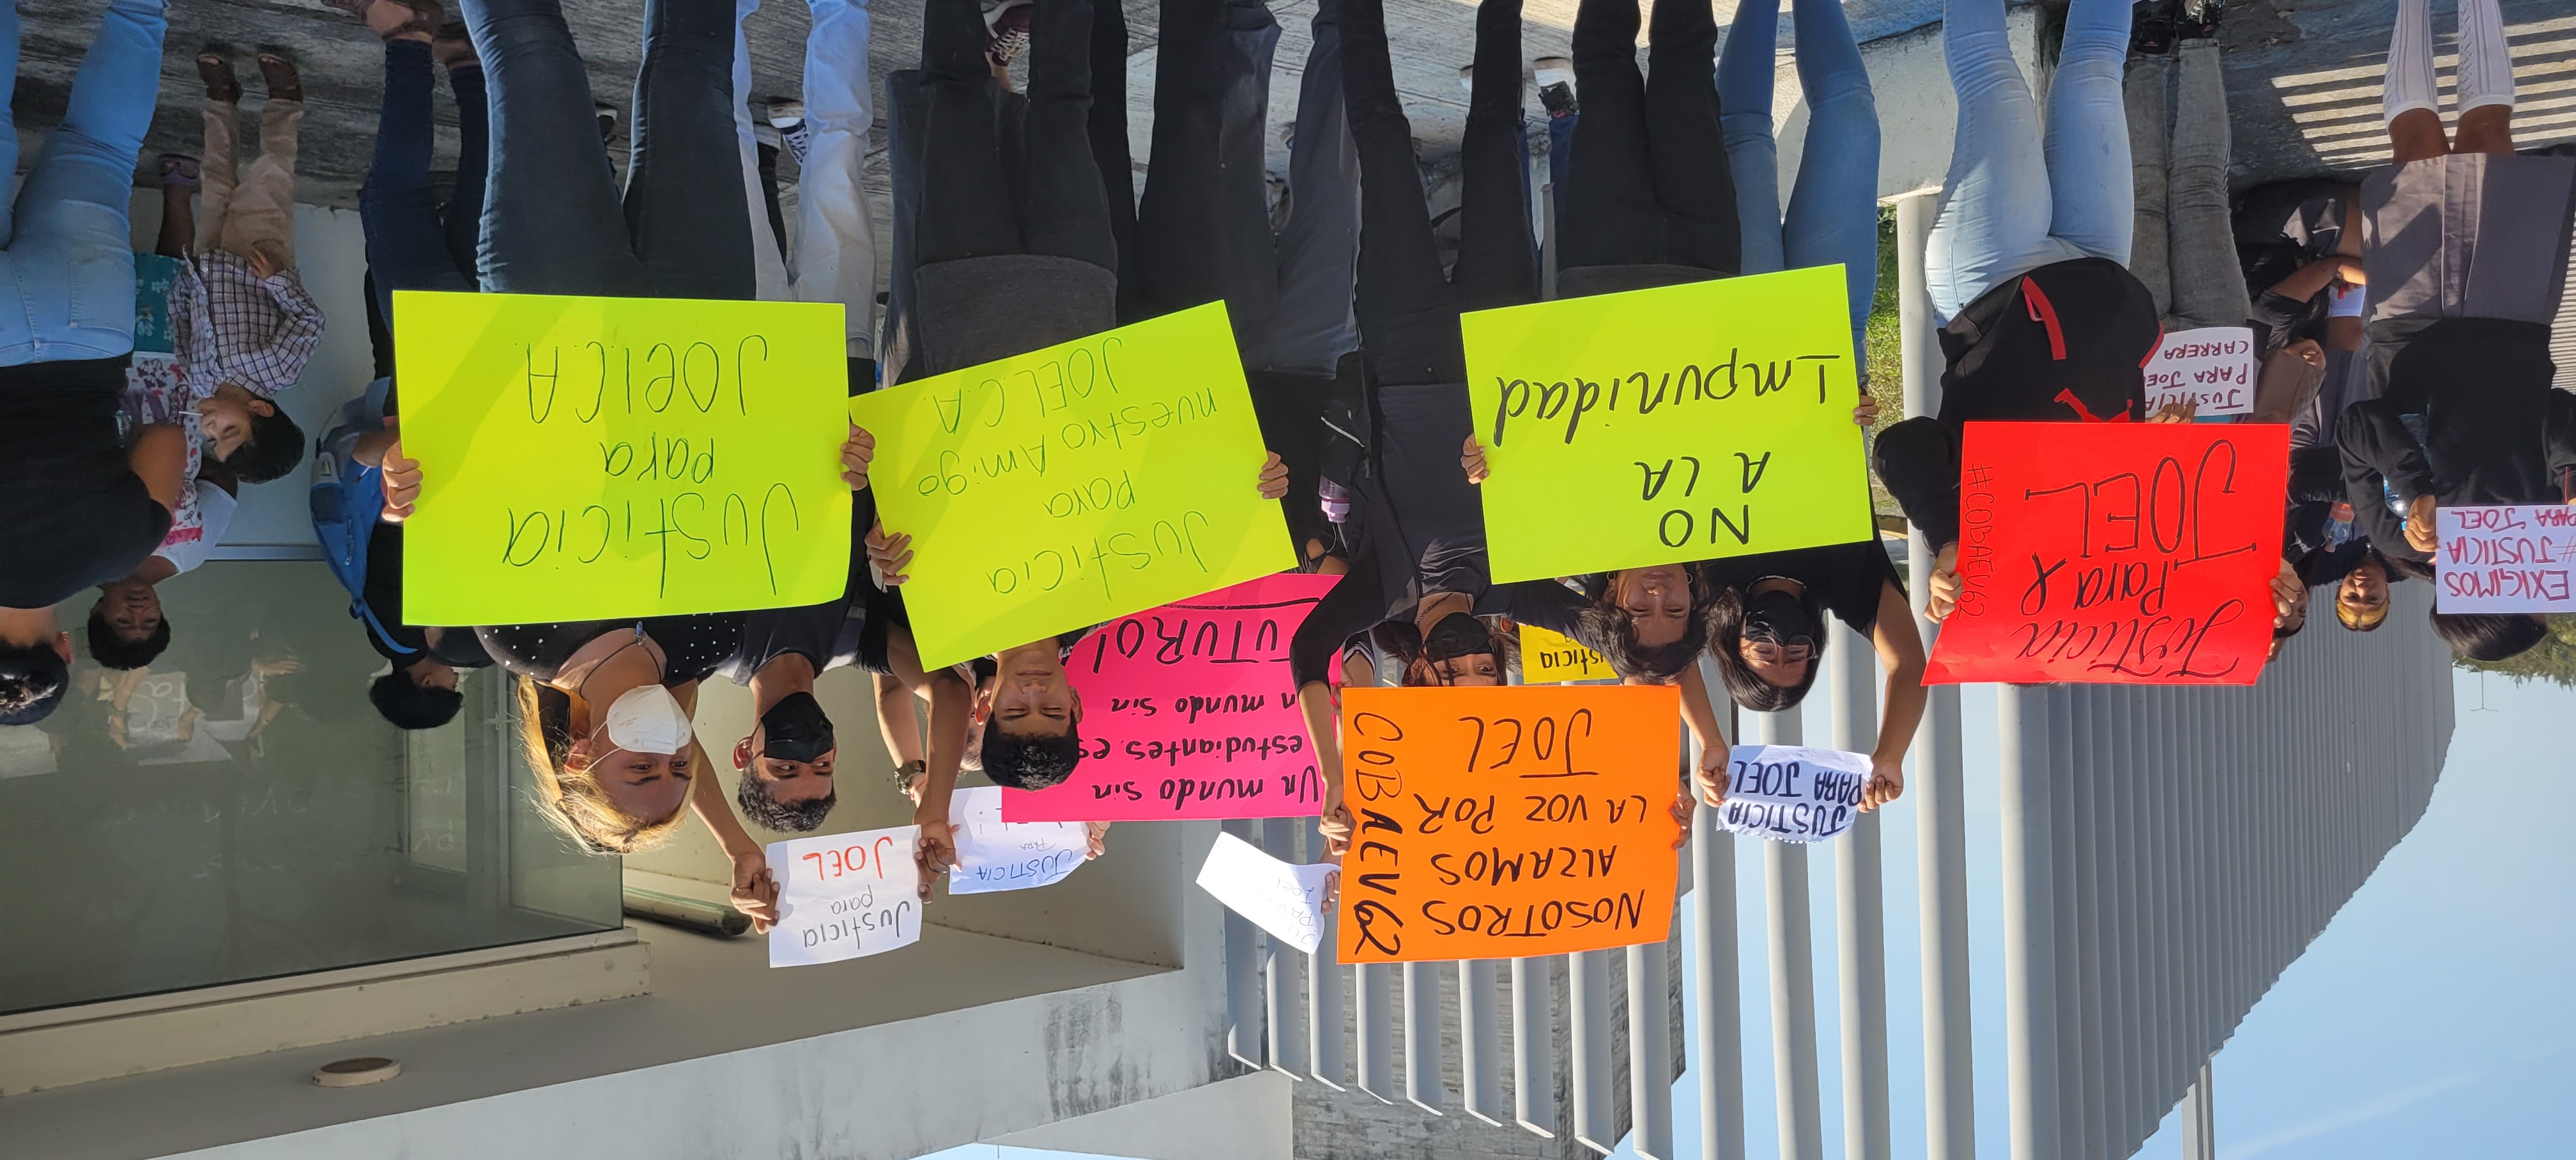 EXIGIMOS
#JUSTICIA
PARA JOEL
Justicia
Para
JOEL
#COBAEV62
Justicia
PARA JOE
CARRERA
JUSTICIA
PARA JOEL
NO
A LA
Impunidad
NOSOTROS
ALZAMOS
LA VOZ POR
JOEL
COBAEV62
usticia
Un mundo sin
estudiantes, es
n mundo sin
UTURO!
JUSTICIA
PARA
Justicia
para
nuestro Amigo
JOEL.C.A.
Justicia
para
JOEL
Justicia
para
JOEl C.A